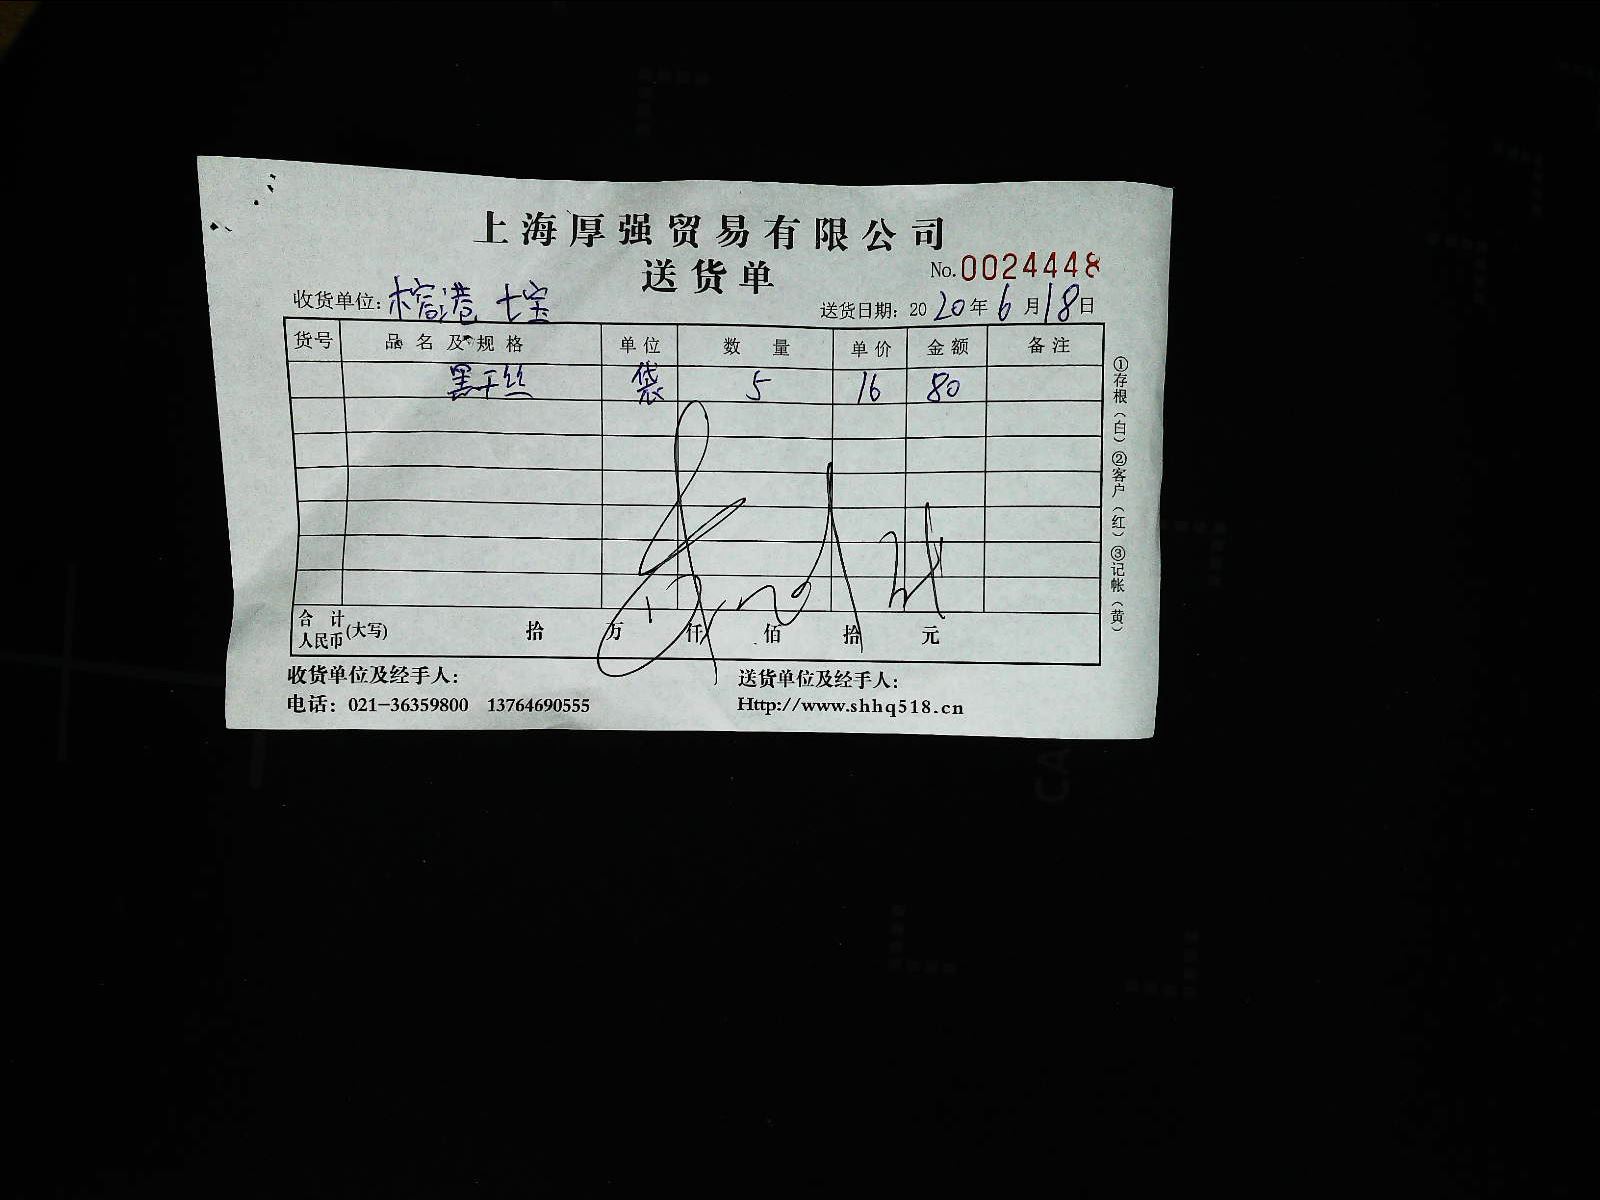 上海厚强贸易有限公司
送货单
No.0024448
收货单位: 榕港 七宝
送货日期: 2020年6月18日
货号 品名及规格 单位 数量 单价 金额 备注
黑干丝 袋 5 16 80
合计人民币(大写) 拾 万 仟 佰 拾 元
收货单位及经手人: 送货单位及经手人:
电话: 021-36359800 13764690555 Http://www.shhq518.cn
①存根(白)②客户(红)③记帐(黄)
CA